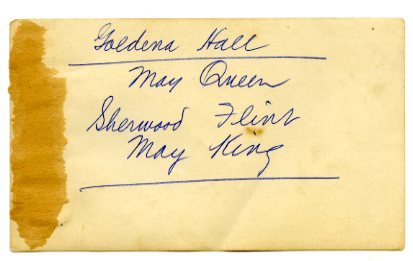 Goldena Hall
May Queen
Sherwood Flint
May King